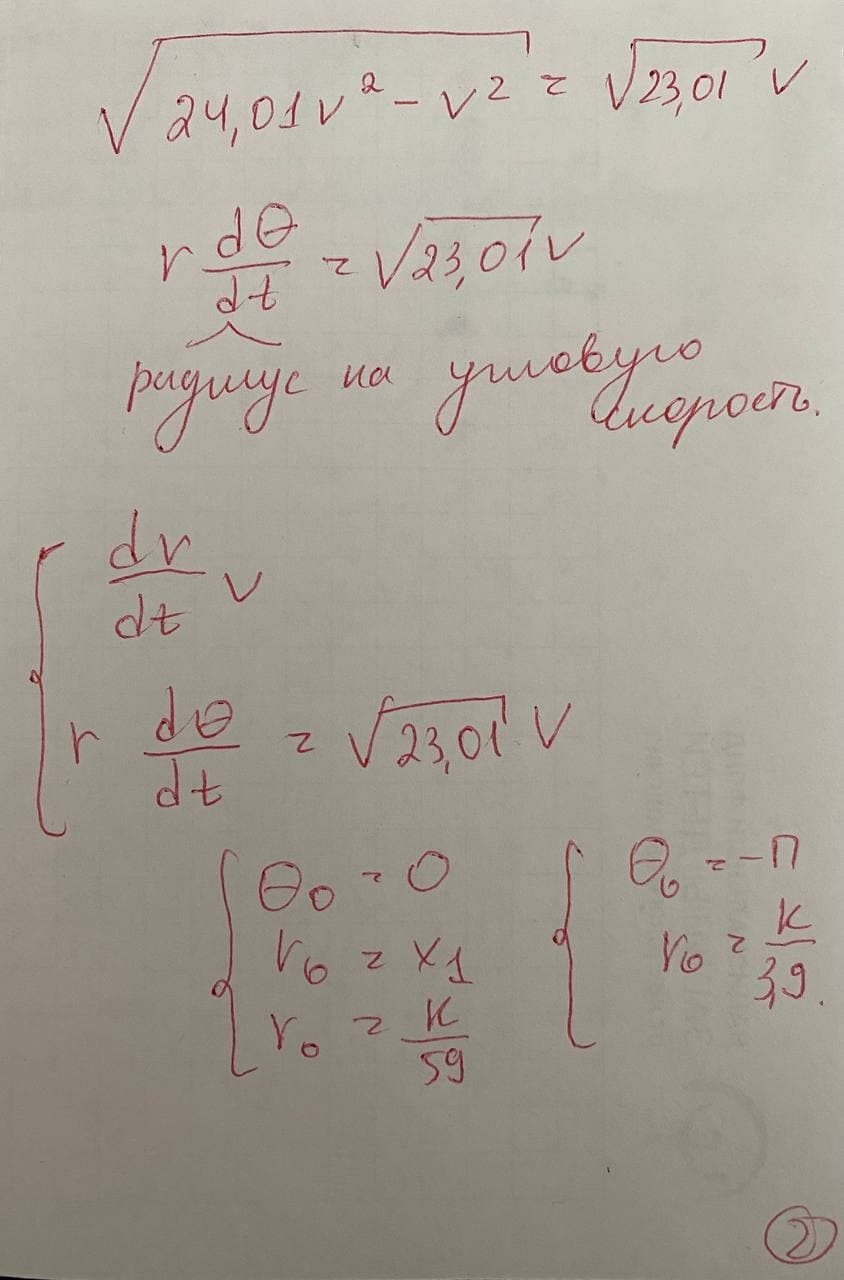 √(24,01v² - v²) = √23,01 v
r dθ/dt = √23,01 v
радиус на угловую
скорость.
dr/dt v
r dθ/dt = √23,01 v
θ₀ = 0
r₀ = x₁
r₀ = к/59
θ₀ = -П
r₀ = к/3,9.
2